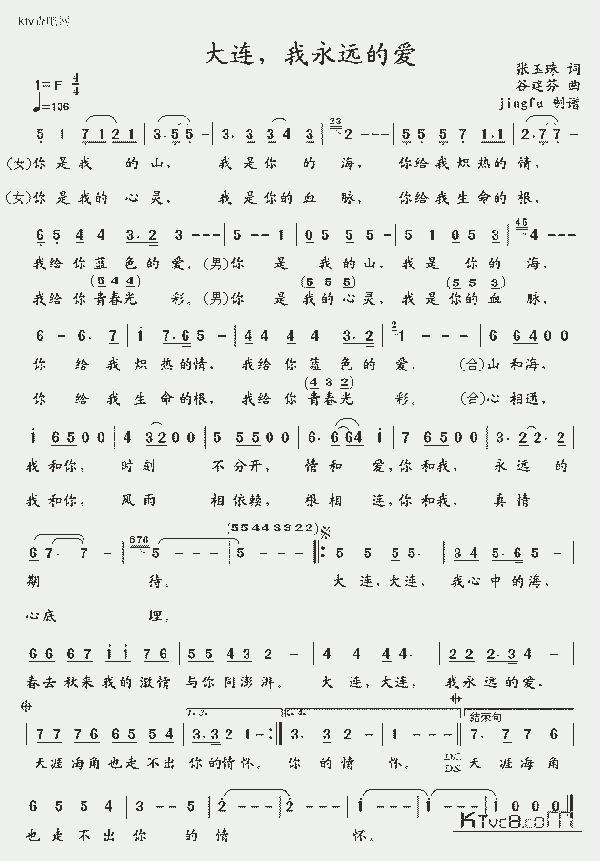 大连，我永远的爱
1=F 4/4
张玉珠 词
谷建芬 曲
♩=136
jingfu 制谱
5 1 7 1 2 1 | 3. 5 5 - | 3. 3 3 4 3 | 2 - - - | 5 5 5 7 1. 1 | 2. 7 7 -
(女)你是我 的山， 我是你 的海， 你给我炽热的情，
(女)你是我的心灵， 我是你的血脉， 你给我生命的根，
6 5 4 4 3. 2 3 - - - | 5 - - 1 | 0 5 5 5 - - | 5 1 0 5 3 | 4 - - -
我给你蓝色的爱。(男)你 是 我的山，我是 你的 海，
(5 4 4) (5 5 5) (5 5 3)
我给你青春光 彩。(男)你 是我的心灵，我是你的血 脉，
6 - 6. 7 | 1 7. 6 5 - | 4 4 4 4 3. 2 | 1 - - - | 6 6 4 0 0
你 给我 炽热的情，我给你 蓝色的 爱。 (合)山和海，
(4 3 2)
你 给我 生命的根，我给你 青春光 彩。 (合)心相通，
1 6 5 0 0 | 4 3 2 0 0 | 5 5 5 0 0 | 6. 6 6 4 1 | 7 6 5 0 0 | 3. 2 2. 2
我和你， 时刻 不分开， 情和 爱，你和我， 永远的
我和你， 风雨 相依赖， 根相 连，你和我， 真情
(5 5 4 4 3 3 2 2)
6 7. 7 - | 5 - - - | 5 - - - 𝄆 5 5 5 5. | 3 4 5. 6 5 -
期 待。 大连，大连， 我心中的海，
心底 埋。
6 6 6 7 1 1 7 6 | 5 5 4 5 3 2 - | 4 4 4 4. | 2 2 2. 3 4 -
春去秋来我的激情 与你同澎湃。 大连，大连， 我永远的爱。
1. 3. 2. 4. 结束句
7 7 7 6 6 5 5 4 | 3. 3 2 1 - 𝄇 3. 3 2 | 1 - - | 7. 7 7 6
天涯海角也走不出 你的情怀。 你的情 怀。 D.S. 天涯海角
6 5 5 4 | 3 - - 5 | 2 - - 2 | 2 - - 1 | 1 - - - | 1 - - - | 1 0 0 0
也走不出 你 的情 怀。
KTvc8.com